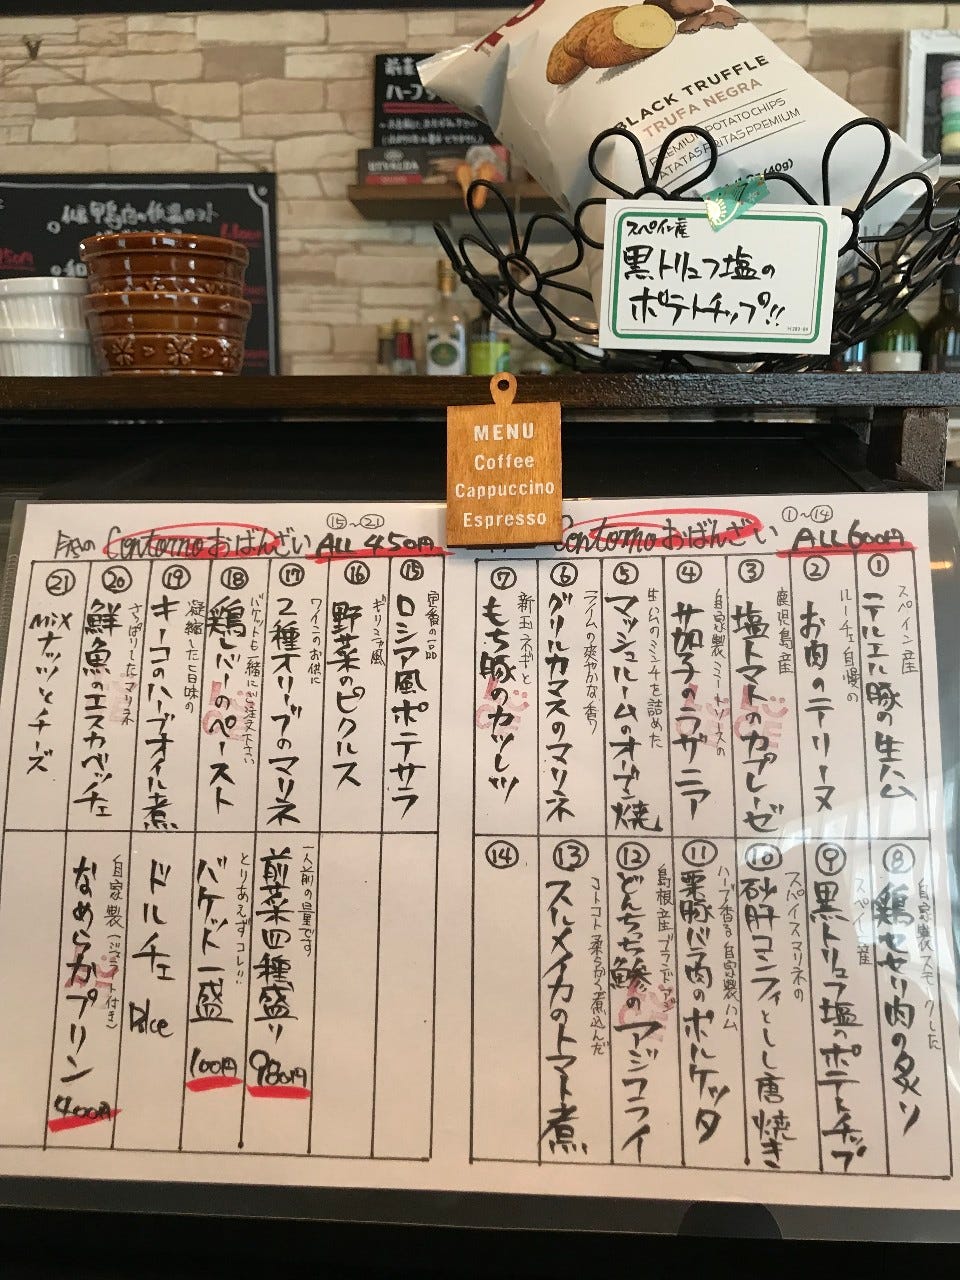 BLACK TRUFFLE
TRUFA NEGRA
PREMIUM POTATO CHIPS
PATATAS FRITAS PREMIUM
(40g)
スペイン産
黒トリュフ塩の
ポテトチップ!!
MENU
Coffee
Cappuccino
Espresso
Contorno おばんざい
①~⑭
ALL 600円
① スペイン産
テルエル豚の生ハム
② ルーチェ自慢の
お肉のテリーヌ
③ 鹿児島産
塩トマトのカプレーゼ
④ 自家製ミートソースの
サ茄子のラザニア
⑤ 生ハムのミンチを詰めた
マッシュルームのオーブン焼
⑥ ライムの爽やかな香り
グリルカマスのマリネ
⑦ 新玉ネギと
もち豚のカツレツ
⑧ 自家製スモークした
鶏セセリ肉の炙り
⑨ スペイン産
黒トリュフ塩のポテトチップ
⑩ スパイスマリネの
砂肝コンフィとしし唐焼き
⑪ ハーブ香る自家製ハム
栗豚バラ肉のポルケッタ
⑫ 島根産ブランドアジ
どんちっち鯵のアジフライ
⑬ コトコト柔らかく煮込んだ
スルメイカのトマト煮
⑭
Contorno おばんざい
⑮~㉑
ALL 450円
⑮ 定番の一品
ロシア風ポテサラ
⑯ ギリシア風
野菜のピクルス
⑰ ワインのお供に
2種オリーブのマリネ
⑱ バケットも一緒にご注文下さい
鶏レバーのペースト
⑲ 凝縮した旨味の
キノコのハーブオイル煮
⑳ さっぱりしたマリネ
鮮魚のエスカベッチェ
㉑ MIX
ナッツとチーズ
一人前の量です
前菜四種盛り
980円
とりあえずコレ!!
バケット一盛
100円
ドルチェ Dolce
自家製(ジェラート付き)
なめらかプリン
400円